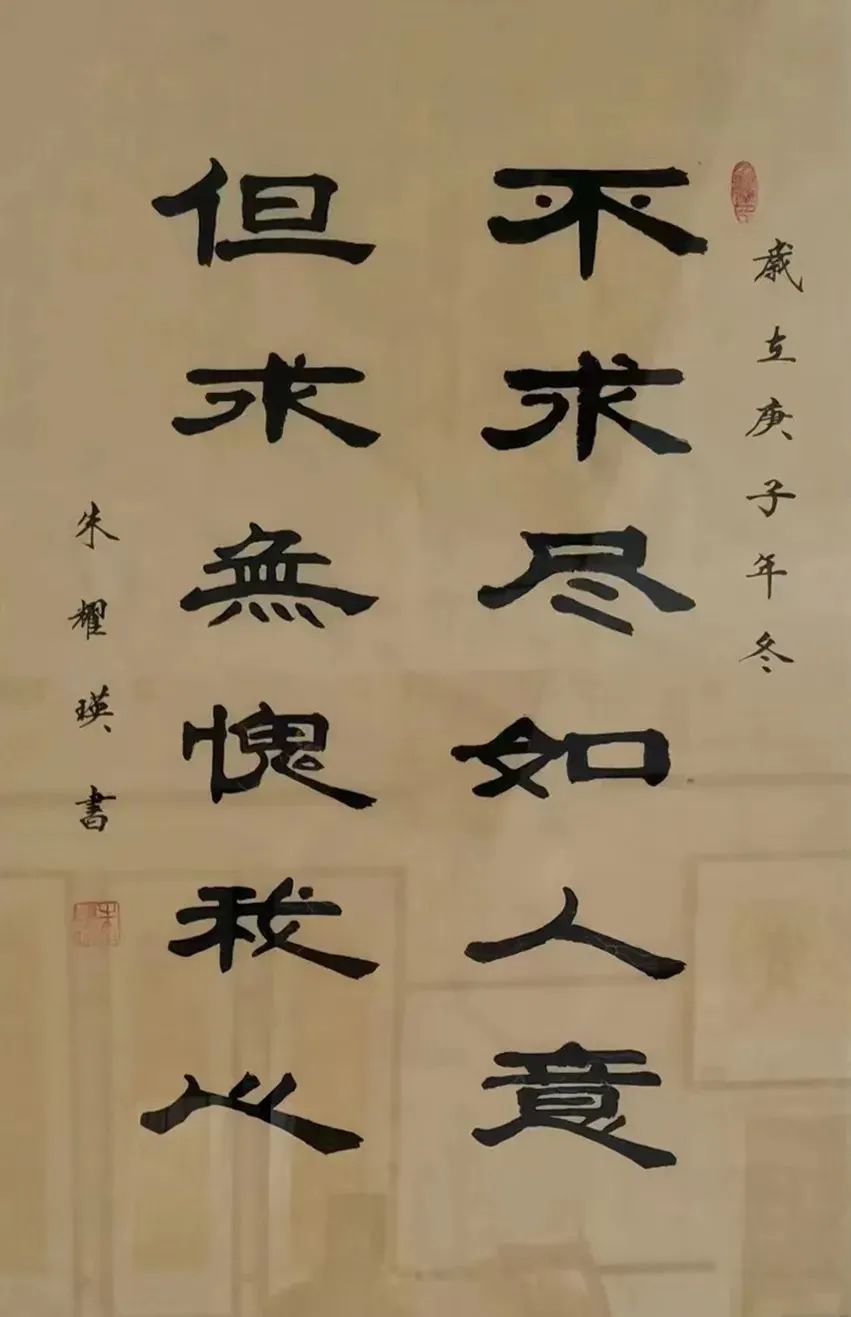 歲在庚子年冬
不求尽如人意
但求無愧我心
朱耀瑛書